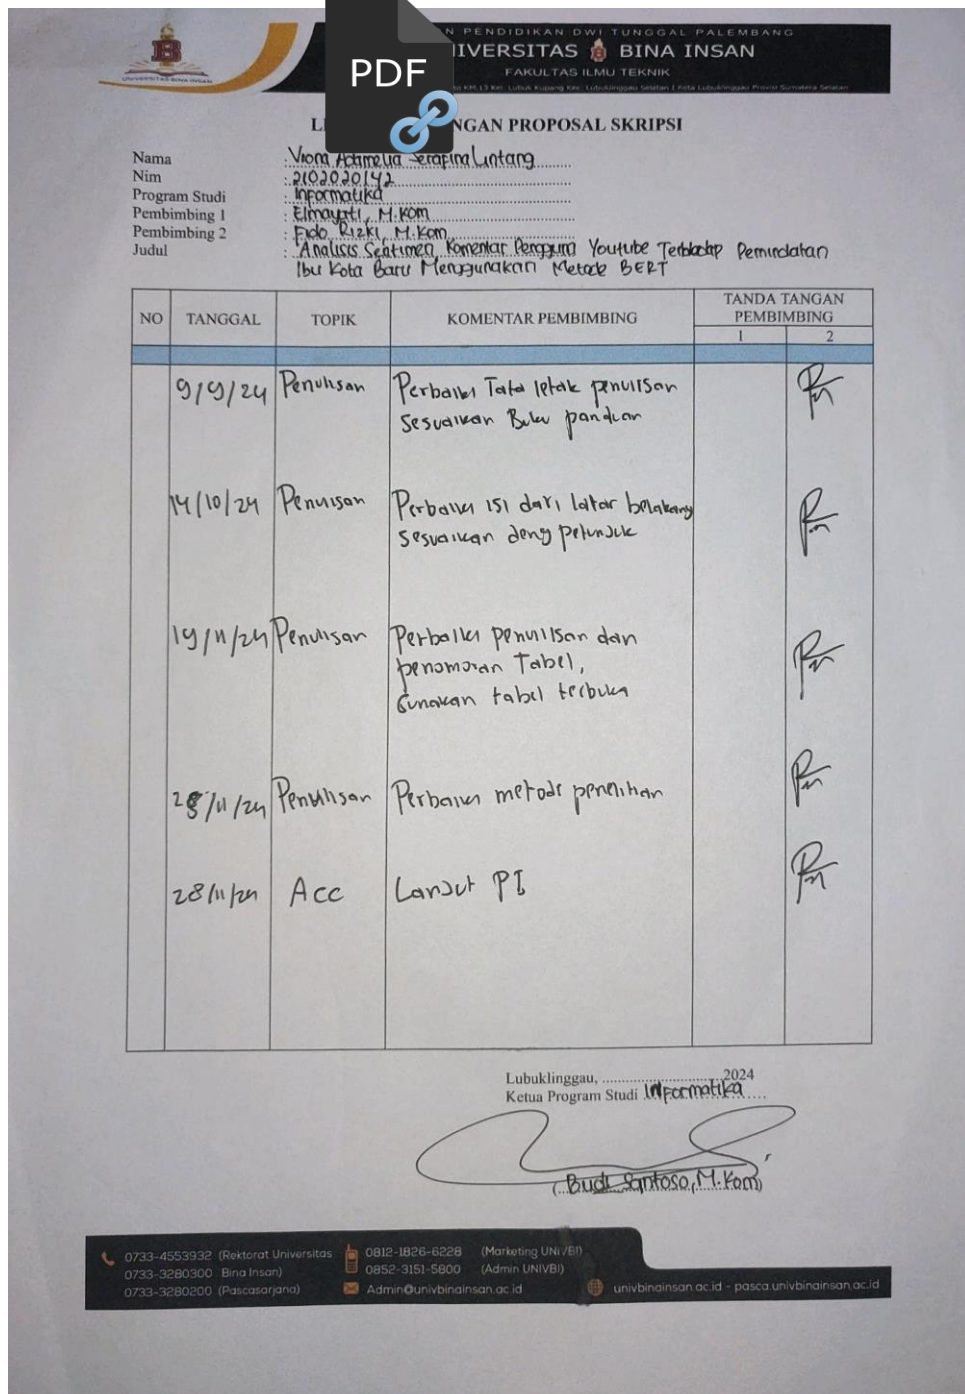 PDF
N PENDIDIKAN DWI TUNGGAL PALEMBANG
IVERSITAS BINA INSAN
FAKULTAS ILMU TEKNIK
KM.13 Kel. Lubuk Kupang Kec. Lubuklinggau Selatan I Kota Lubuklinggau Provinsi Sumatera Selatan
UNIVERSITAS BINA INSAN
NGAN PROPOSAL SKRIPSI
Nama : Viona Adamelia Serafina Lintang
Nim : 2102020142
Program Studi : Informatika
Pembimbing 1 : Elmayati, M.Kom
Pembimbing 2 : Fido Rizki, M.Kom
Judul : "Analisis Sentimen Komentar Pengguna Youtube Terhadap Pemindahan
Ibu Kota Baru Menggunakan Metode BERT
NO TANGGAL TOPIK KOMENTAR PEMBIMBING TANDA TANGAN PEMBIMBING
1 2
9/9/24 Penulisan Perbaiki Tata letak penulisan
sesuaikan Buku panduan
14/10/24 Penulisan Perbaiki isi dari latar belakang
sesuaikan deng petunjuk
19/11/24 Penulisan Perbaiki penulisan dan
penomoran Tabel,
Gunakan tabel terbuka
/11/24 Penulisan Perbaiki metode penelitian
28/11/24 Acc Lanjut PI
Lubuklinggau, ........................2024
Ketua Program Studi Informatika
(Budi Santoso, M.Kom)
0733-4553932 (Rektorat Universitas
0733-3280300 Bina Insan)
0733-3280200 (Pascasarjana)
0812-1826-6228 (Marketing UNIVBI)
0852-3151-5800 (Admin UNIVBI)
Admin@univbinainsan.ac.id
univbinainsan.ac.id - pasca.univbinainsan.ac.id